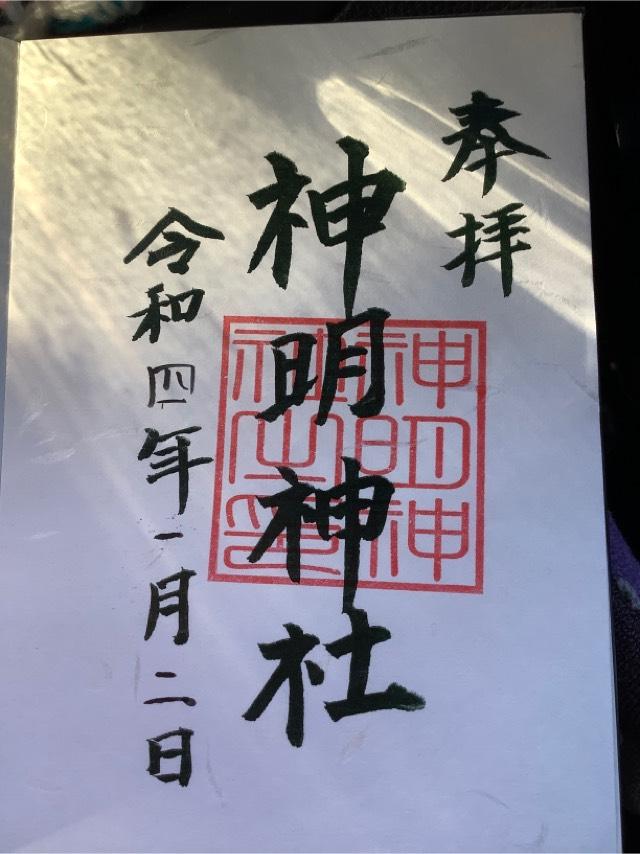 奉拝
神明神社
神明神社之印
令和四年一月二日